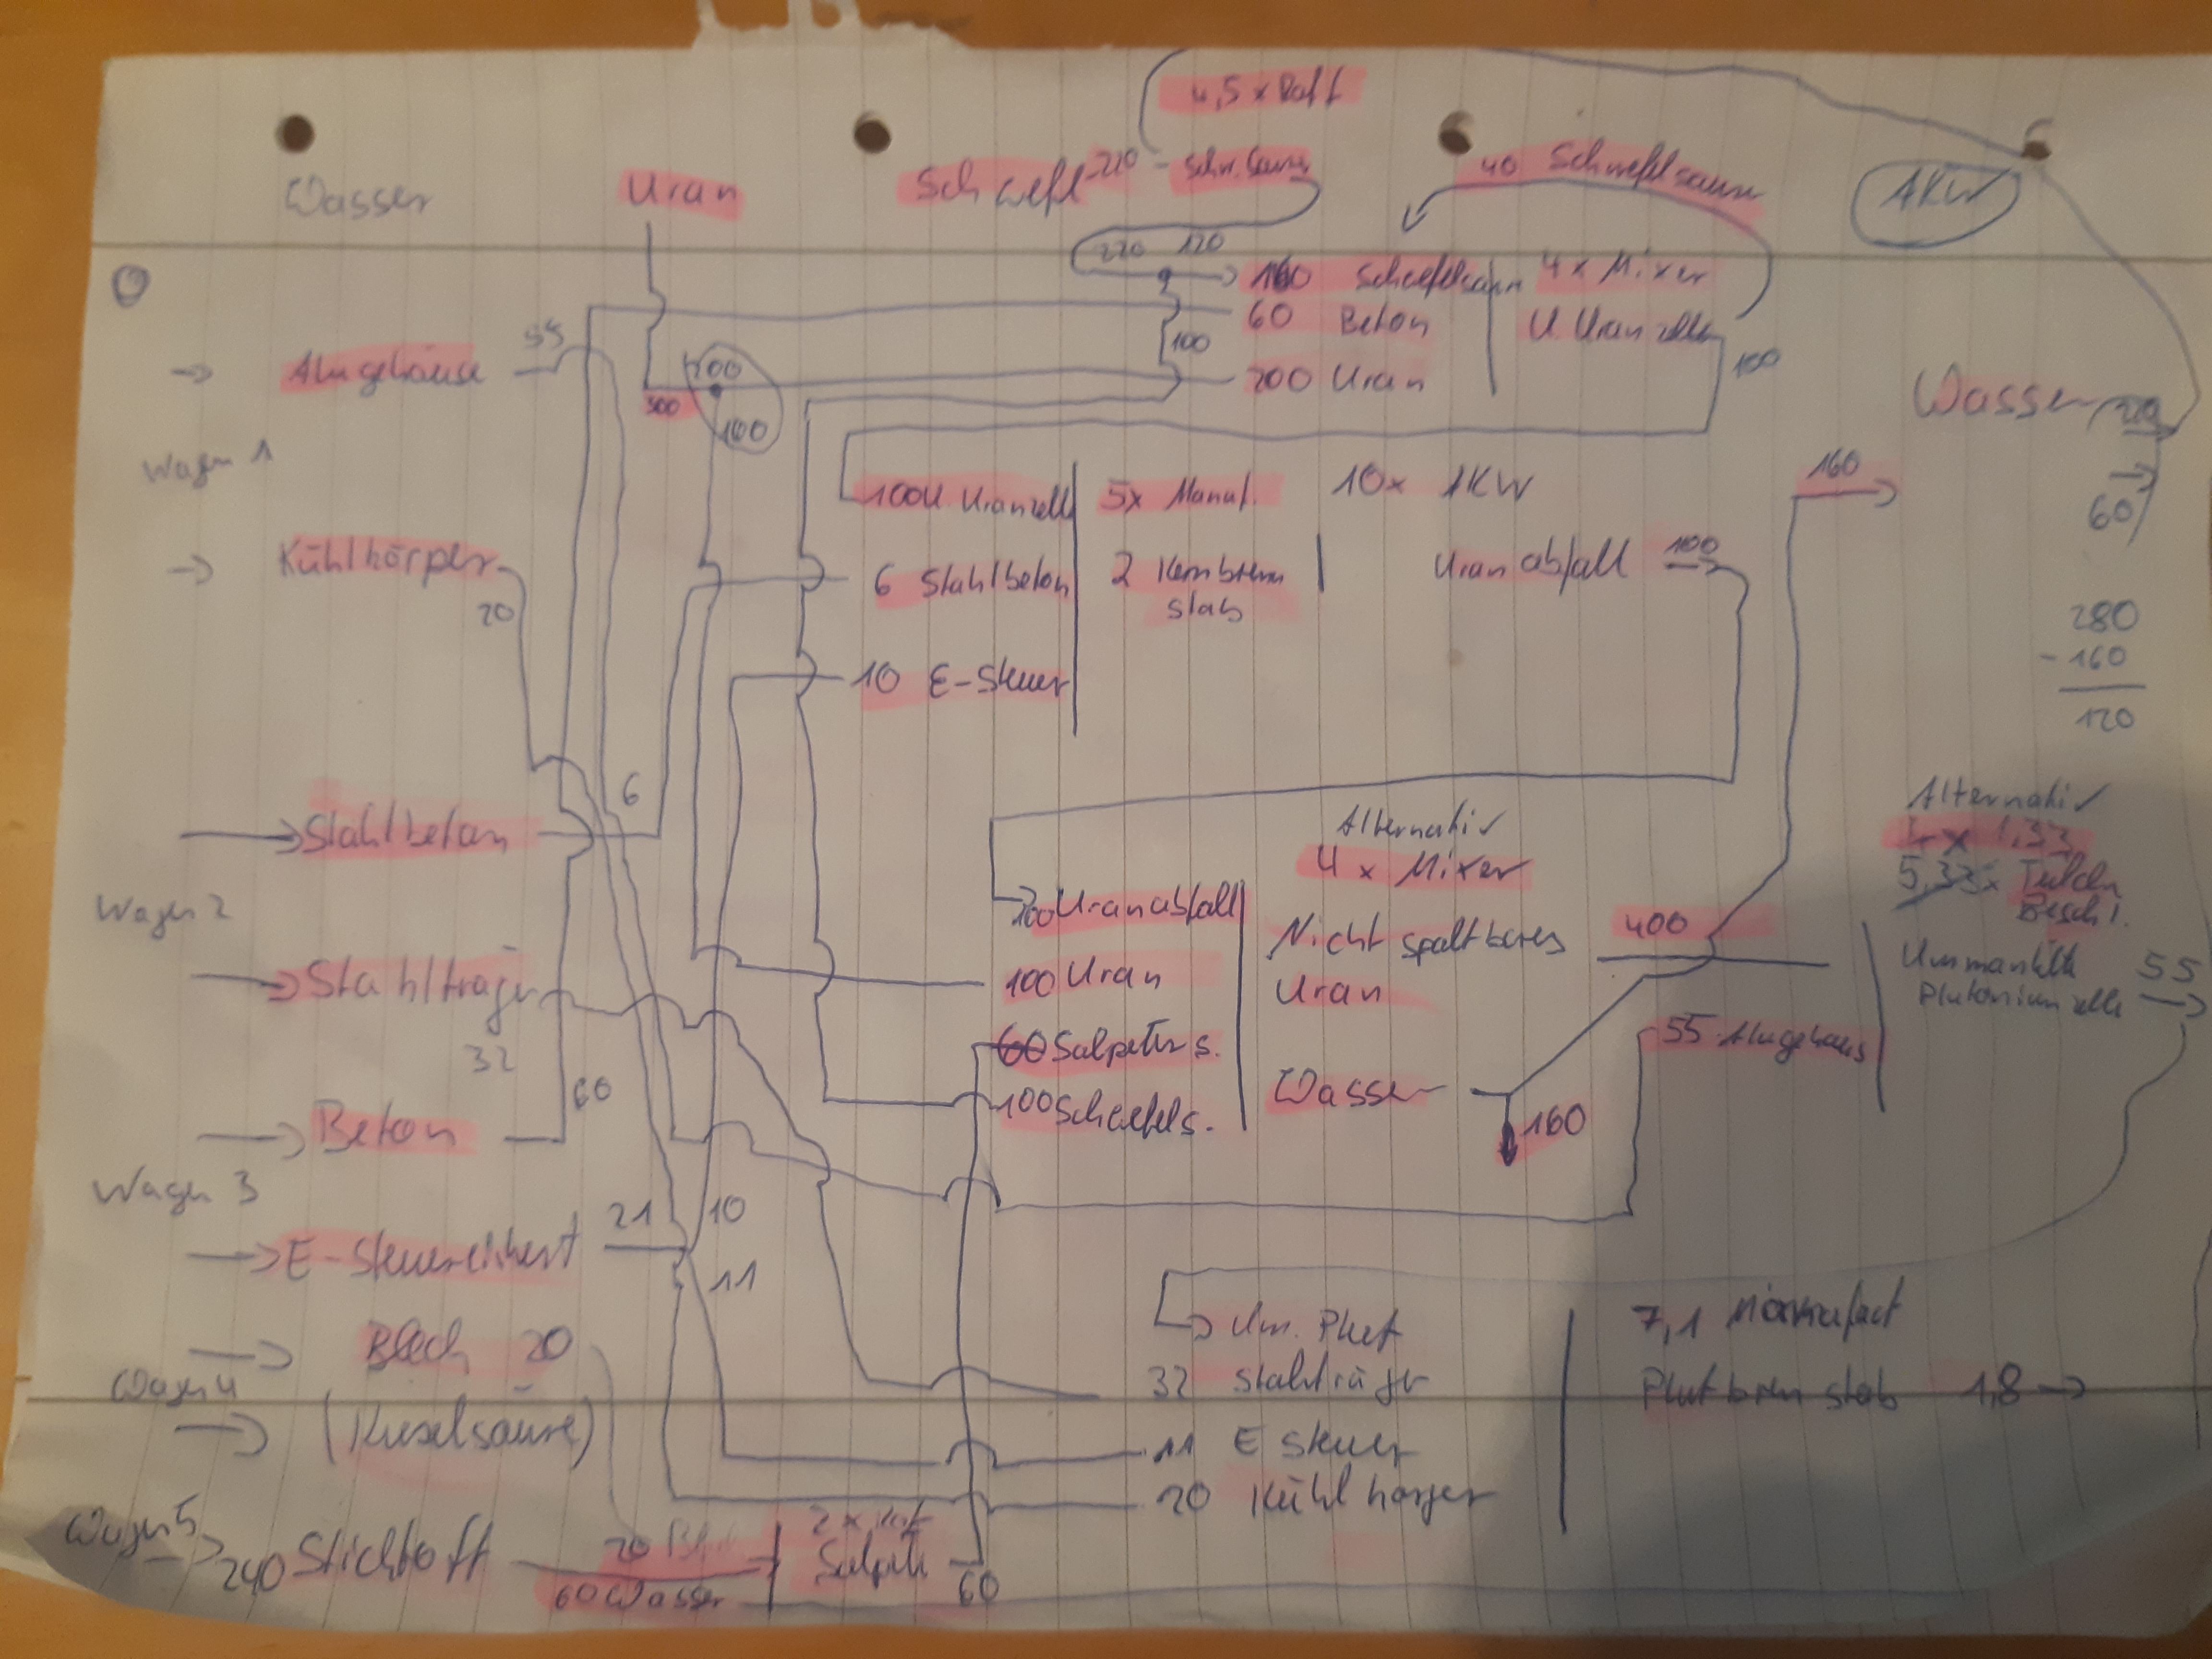 4,5 x Raff
Wasser
Uran
Schwefl
220 - Schw. Säure
40 Schwefelsäure
AKW
220 120
160 Schwefelsäure
4x Mixer
60 Beton
U. Uranzellen
100
200 Uran
100
→ Alugehäuse 55
200
300
100
Wasser 220
60
Wagen 1
→ Kühlkörper
20
100 U. Uranzelle
5x Manuf.
10x AKW
160
6 Stahlbeton
2 Kernbrenn
stab
Uranabfall 100
10 E-Steuer
280
- 160
120
6
→ Stahlbeton
Wagen 2
→ Stahlträger
32
Alternativ
4 x Mixer
Alternativ
4x 1,33
5,33x Teilchen
Beschl.
100 Uranabfall
Nicht spaltbares
Uran
400
100 Uran
Ummantelte
Plutoniumzelle
55
60 Salpeters.
55 Alugehäus
100 Schwefels.
Wasser
160
60
→ Beton
Wagen 3
→ E-Steuereinheit
21
10
11
→ Blech 20
Wagen 4
→ (Kieselsäure)
→ Um. Plut
7,1 Manufact
32 Stahlträger
Plutbrenstab 1,8 →
11 E Steuer
20 Kühlkörper
Wagen 5
→ 240 Stickstoff
20
60 Wasser
2x
Salpet
60